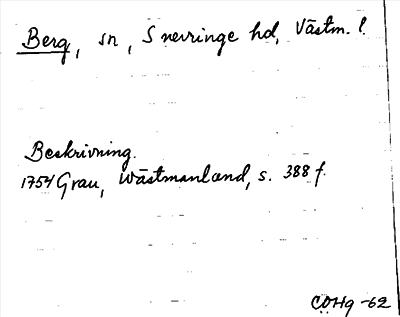 Berg, sn, Snevringe hd, Västm. l.
Beskrivning.
1754 Grau, Wästmanland, s. 388 f.
COHg -62